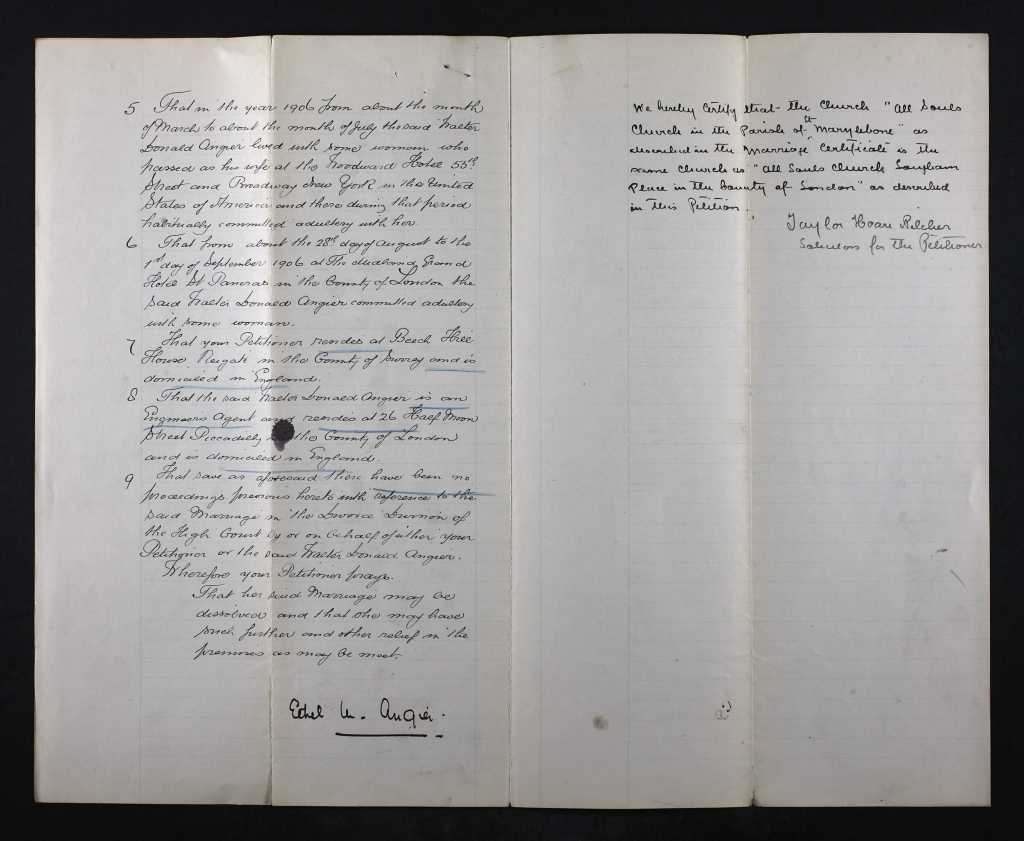 5 That in the year 1906 from about the month
of March to about the month of July the said Walter
Donald Angier lived with some woman who
passed as his wife at the Woodward Hotel 55th
Street and Broadway New York in the United
States of America and there during that period
habitually committed adultery with her.
6 That from about the 28th day of August to the
1st day of September 1906 at The Midland Grand
Hotel St Pancras in the County of London the
said Walter Donald Angier committed adultery
with some woman.
7 That your Petitioner resides at Beech Hill
House Reigate in the County of Surrey and is
domiciled in England.
8 That the said Walter Donald Angier is an
Engineers Agent and resides at 26 Half Moon
Street Piccadilly in the County of London
and is domiciled in England.
9 That save as aforesaid there have been no
proceedings previous hereto with reference to the
said Marriage in the Divorce Division of
the High Court by or on behalf of either your
Petitioner or the said Walter Donald Angier.
Wherefore your Petitioner prays.
That her said Marriage may be
dissolved and that she may have
such further and other relief in the
premises as may be meet.
Ethel M. Angier.
We hereby certify that the Church "All Souls
Church in the Parish of St Marylebone" as
described in the Marriage Certificate is the
same church as "All Souls Church Langham
Place in the County of London" as described
in this Petition.
Taylor Hoare Pilcher
Solicitors for the Petitioner